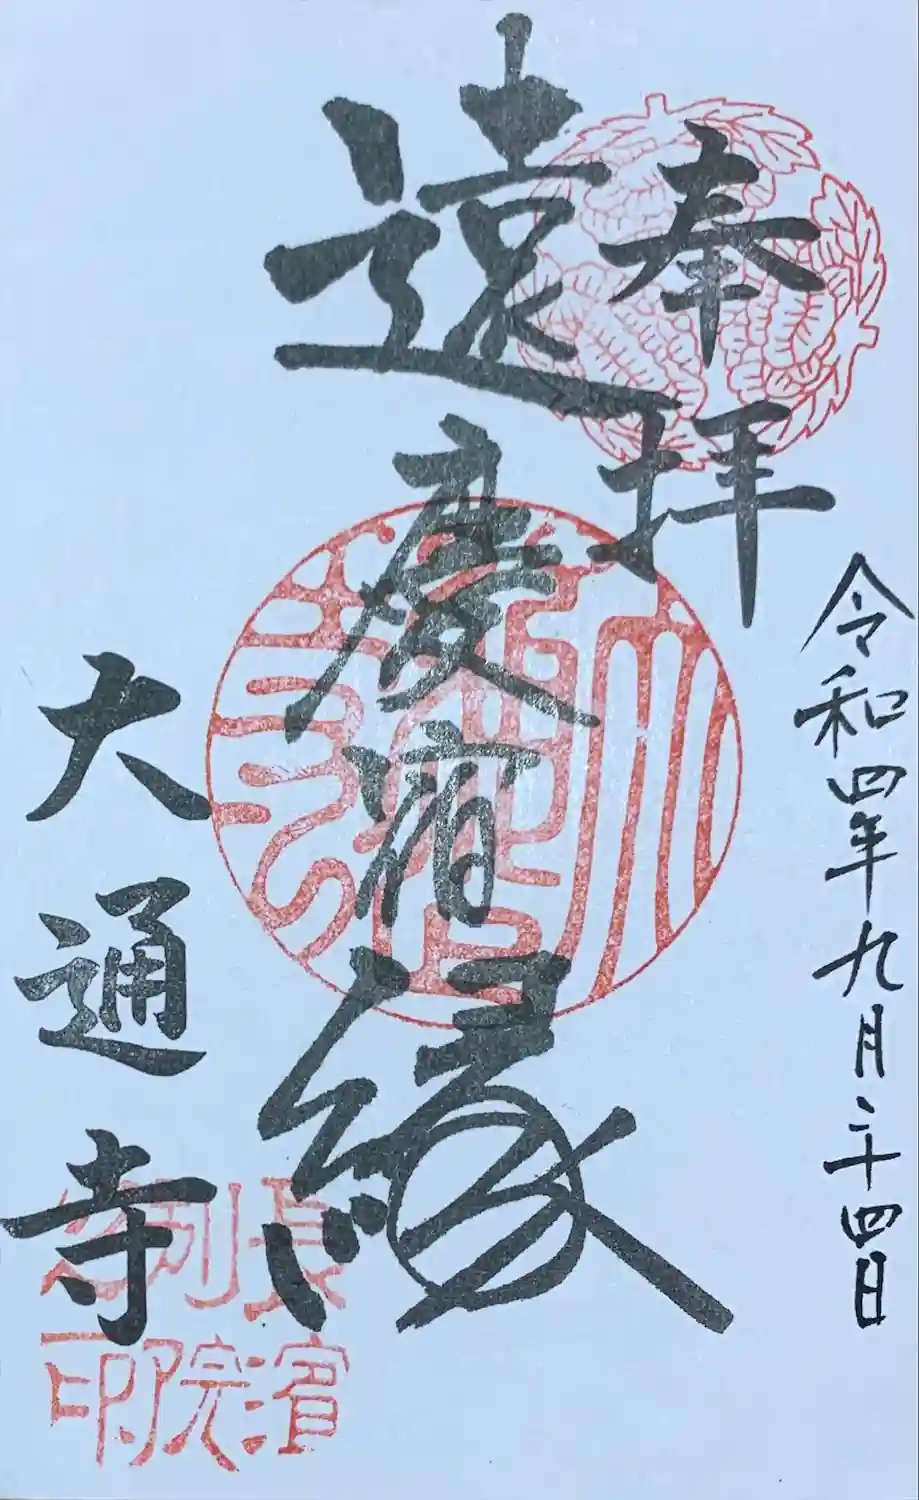 奉拝
令和四年九月二十四日
遠慶宿縁
大通寺
長濱
別院
印